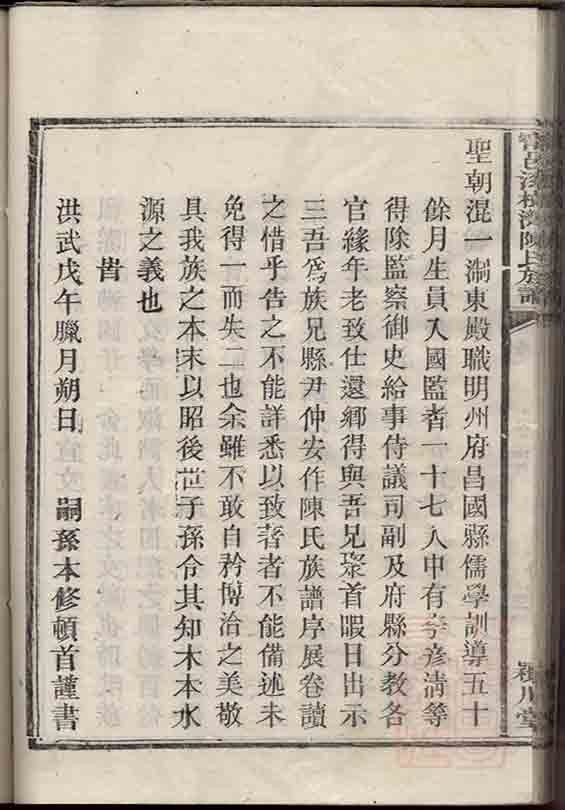 聖朝混一澗東殿職明州府昌國縣儒學訓導五十
餘月生員入國監者一十七人中有李彥清等
得除監察御史給事侍議司副及府縣分教各
官緣年老致仕還鄉得與吾兄聚首暇日出示
三吾為族兄縣尹仲安作陳氏族譜序展卷讀
之惜乎告之不能詳悉以致著者不能備述未
免得一而失二也余雖不敢自矜博洽之美敬
具我族之本末以昭後世子孫令其知木本水
源之義也
旹
洪武戊午臘月朔日 嗣孫本修頓首謹書
陳氏族譜
潁川堂